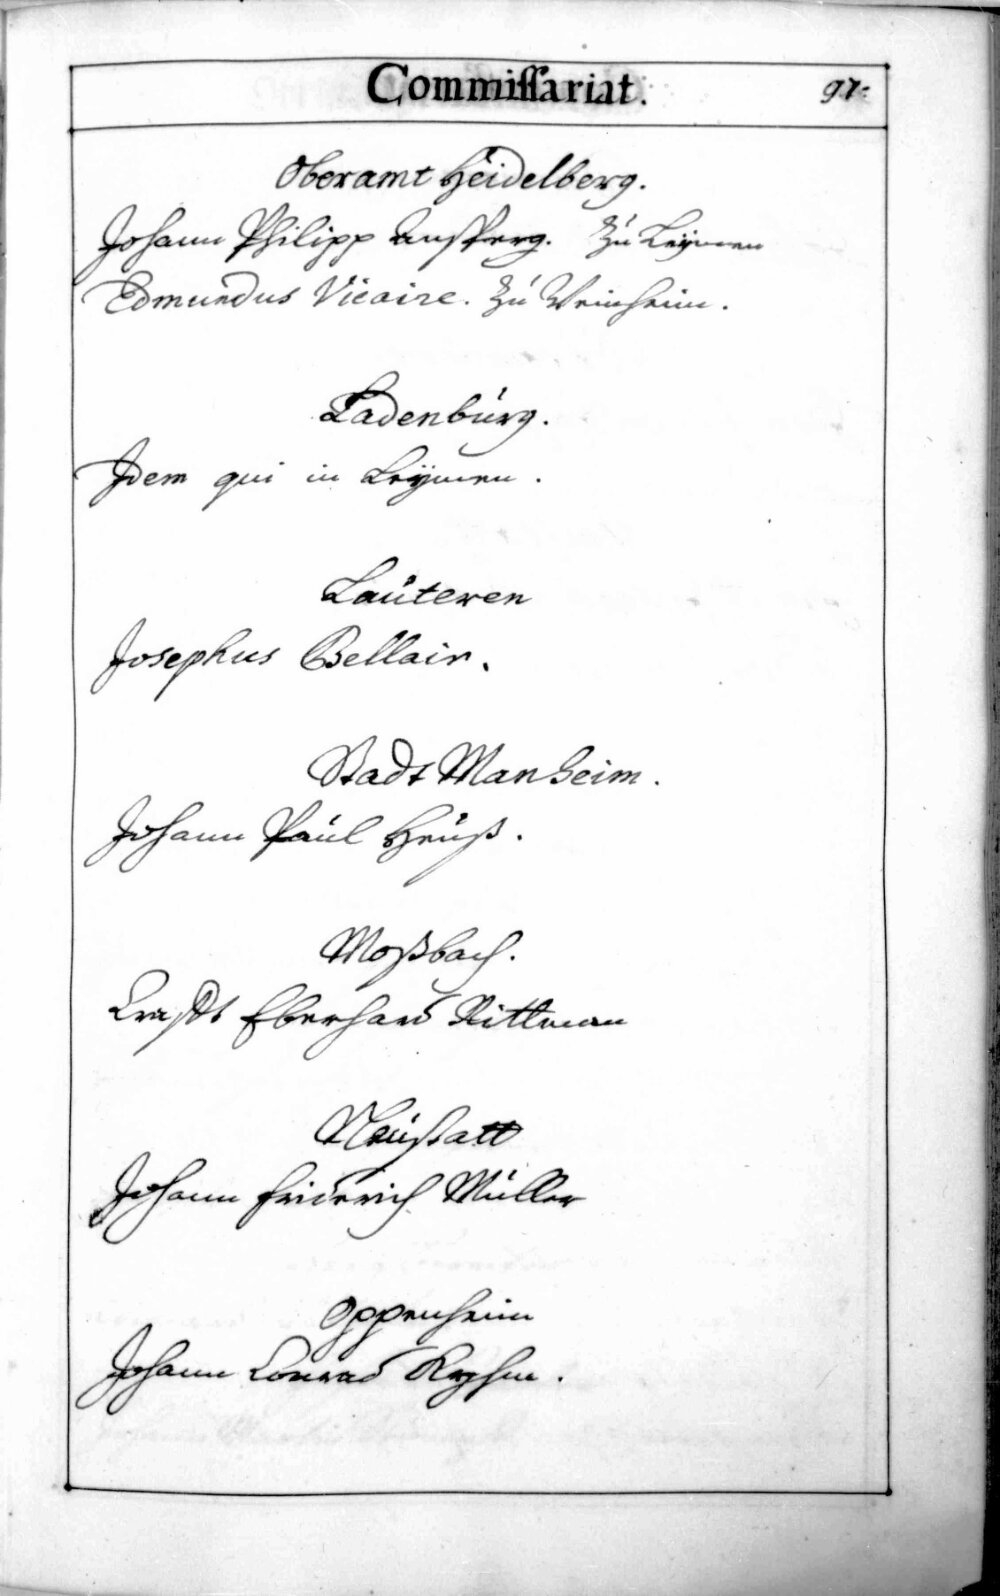 Commissariat.
97.
Oberamt Heidelberg.
Johann Philipp zu Leÿmen
Edmundus Vicaire. zu Weinheim.
Ladenburg.
Idem qui in Leÿmen.
Lauteren
Josephus Bellair.
Stadt Manheim.
Johann Paul Heuß.
Moßbach.
Eberhard Rittman
Neustatt
Johann Friderich Müller
Oppenheim
Johann Conrad